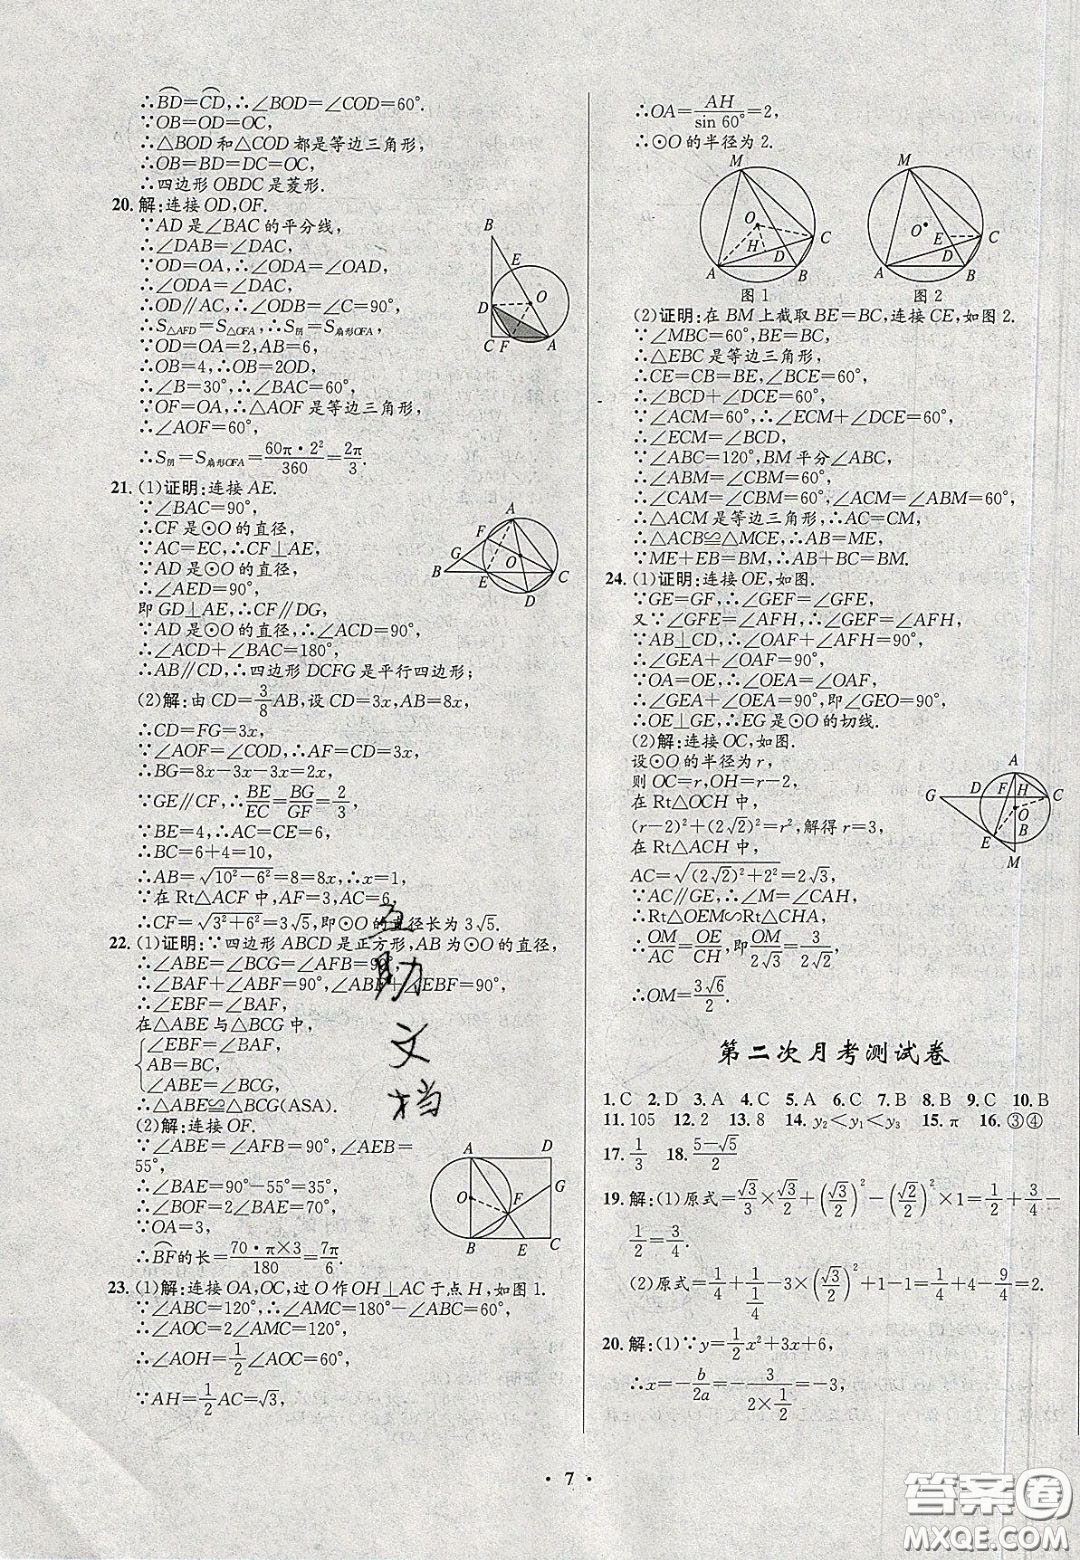 ∴BD=CD,∴∠BOD=∠COD=60°.
∵OB=OD=OC,
∴△BOD和△COD都是等边三角形,
∴OB=BD=DC=OC,
∴四边形OBDC是菱形.
20. 解:连接OD,OF.
∵AD是∠BAC的平分线,
∴∠DAB=∠DAC,
∵OD=OA,∴∠ODA=∠OAD,
∴∠ODA=∠DAC,
∴OD∥AC,∴∠ODB=∠C=90°,
∴S△AFD=S△OFA,∴S阴=S扇形OFA,
∵OD=OA=2,AB=6,
∴OB=4,∴OB=2OD,
∴∠B=30°,∴∠BAC=60°,
∵OF=OA,∴△AOF是等边三角形,
∴∠AOF=60°,
∴S阴=S扇形OFA=60π·2²/360=2π/3.
B
E
D
O
C F A
21. (1)证明:连接AE.
∵∠BAC=90°,
∴CF是⊙O的直径,
∵AC=EC,∴CF⊥AE,
∵AD是⊙O的直径,
∴∠AED=90°,
即GD⊥AE,∴CF∥DG,
∵AD是⊙O的直径,∴∠ACD=90°,
∴∠ACD+∠BAC=180°,
∴AB∥CD,∴四边形DCFG是平行四边形;
(2)解:由CD=3/8AB,设CD=3x,AB=8x,
∴CD=FG=3x,
∵∠AOF=∠COD,∴AF=CD=3x,
∴BG=8x-3x-3x=2x,
∵GE∥CF,∴BE/EC=BG/GF=2/3,
∵BE=4,∴AC=CE=6,
∴BC=6+4=10,
∴AB=√(10²-6²)=8=8x,∴x=1,
∵在Rt△ACF中,AF=3,AC=6,
∴CF=√(3²+6²)=3√5,即⊙O的直径长为3√5.
A
F
G
O
B E C
D
22. (1)证明:∵四边形ABCD是正方形,AB为⊙O的直径,
∴∠ABE=∠BCG=∠AFB=90°,
∴∠BAF+∠ABF=90°,∠ABF+∠EBF=90°,
∴∠EBF=∠BAF,
在△ABE与△BCG中,
{∠EBF=∠BAF,
AB=BC,
∠ABE=∠BCG,
∴△ABE≌△BCG(ASA).
(2)解:连接OF.
∵∠ABE=∠AFB=90°,∠AEB=
55°,
∴∠BAE=90°-55°=35°,
∴∠BOF=2∠BAE=70°,
∵OA=3,
∴BF的长=70·π×3/180=7π/6.
A D
G
O F
B E C
互助文档
23. (1)解:连接OA,OC,过O作OH⊥AC于点H,如图1.
∵∠ABC=120°,∴∠AMC=180°-∠ABC=60°,
∴∠AOC=2∠AMC=120°,
∴∠AOH=1/2∠AOC=60°,
∵AH=1/2AC=√3,
∴OA=AH/sin 60°=2,
∴⊙O的半径为2.
M
O
C
H D
A B
图1
M
O
E C
D
A B
图2
(2)证明:在BM上截取BE=BC,连接CE,如图2.
∵∠MBC=60°,BE=BC,
∴△EBC是等边三角形,
∴CE=CB=BE,∠BCE=60°,
∴∠BCD+∠DCE=60°,
∵∠ACM=60°,∴∠ECM+∠DCE=60°,
∴∠ECM=∠BCD,
∵∠ABC=120°,BM平分∠ABC,
∴∠ABM=∠CBM=60°,
∴∠CAM=∠CBM=60°,∠ACM=∠ABM=60°,
∴△ACM是等边三角形,∴AC=CM,
∴△ACB≌△MCE,∴AB=ME,
∵ME+EB=BM,∴AB+BC=BM.
24. (1)证明:连接OE,如图.
∵GE=GF,∴∠GEF=∠GFE,
又∵∠GFE=∠AFH,∴∠GEF=∠AFH,
∵AB⊥CD,∴∠OAF+∠AFH=90°,
∴∠GEA+∠OAF=90°,
∵OA=OE,∴∠OEA=∠OAF,
∴∠GEA+∠OEA=90°,即∠GEO=90°,
∴OE⊥GE,∴EG是⊙O的切线.
(2)解:连接OC,如图.
设⊙O的半径为r,
则OC=r,OH=r-2,
在Rt△OCH中,
(r-2)²+(2√2)²=r²,解得r=3,
在Rt△ACH中,
AC=√((2√2)²+2²)=2√3,
∵AC∥GE,∴∠M=∠CAH,
∴Rt△OEM∽Rt△CHA,
∴OM/AC=OE/CH,即OM/2√3=3/2√2,
∴OM=3√6/2.
A
G D F H C
O
E B
M
第二次月考测试卷
1. C 2. D 3. A 4. C 5. A 6. C 7. B 8. B 9. C 10. B
11. 105 12. 2 13. 8 14. y₂<y₁<y₃ 15. π 16. ③④
17. 1/3 18. (5-√5)/2
19. 解:(1)原式=√3/3×√3/2+(√3/2)²-(√2/2)²×1=1/2+3/4-
1/2=3/4.
(2)原式=1/4+1/(1/4)-3×(√3/2)²+1-1=1/4+4-9/4=2.
20. 解:(1)∵y=1/2x²+3x+6,
∴x=-b/2a=-3/(2×1/2)=-3,
· 7 ·
答案圈
MXQE.COM